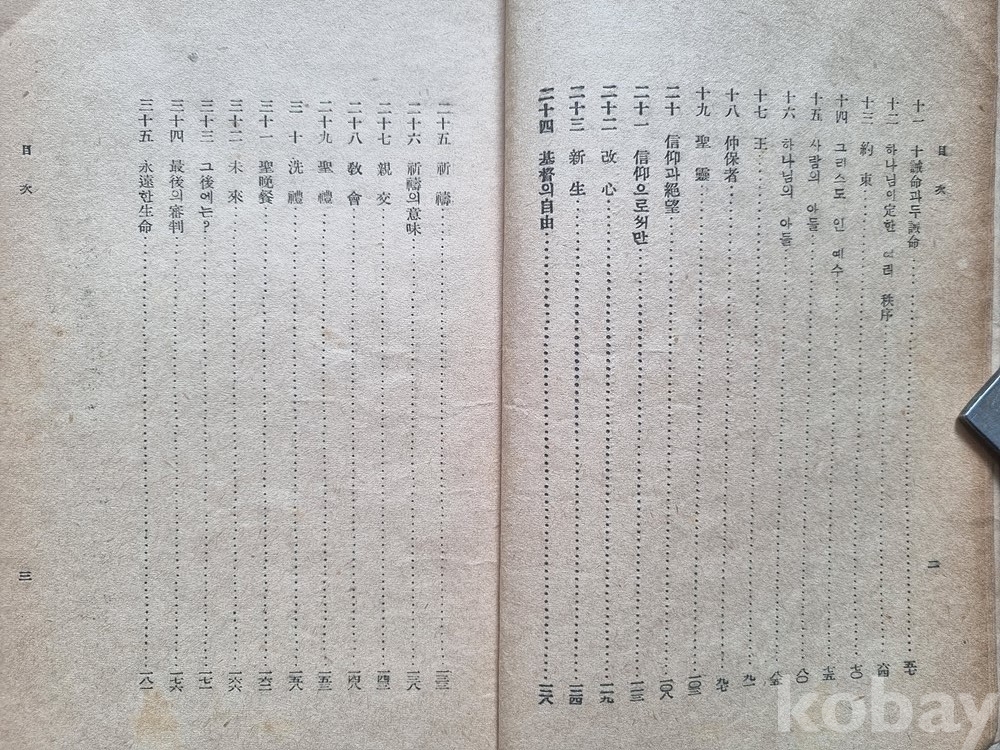 目次
二
十一 十誡命과두誡命 五七
十二 하나님이定한 여러 秩序 六四
十三 約束 七〇
十四 그리스도 인 예수 七五
十五 사람의 아들 八〇
十六 하나님의 아들 八五
十七 王 九一
十八 仲保者 九七
十九 聖靈 一〇三
二十 信仰과絕望 一〇八
二十一 信仰으로써만 一一三
二十二 改心 一一九
二十三 新生 一二四
二十四 基督의自由 一二八
二十五 祈禱 一三三
二十六 祈禱의意味 一三八
二十七 親交 一四三
二十八 敎會 一四八
二十九 聖禮 一五三
三十 洗禮 一五八
三十一 聖晩餐 一六二
三十二 未來 一六六
三十三 그後에는? 一七一
三十四 最後의審判 一七六
三十五 永遠한生命 一八一
目次
三
kobay